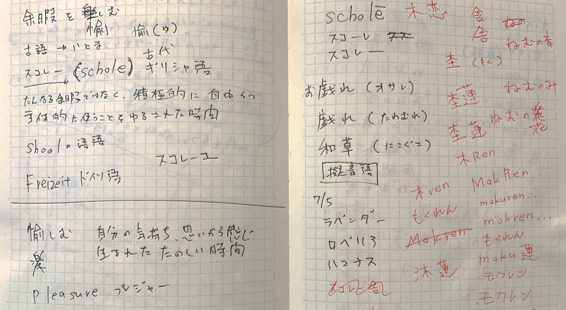 余暇を楽しむ
愉 愉(ゆ)
古語→いとま
古代
スコレー (schole) ギリシャ語
たんなる余暇ではなく、積極的に
主体的に使うことをゆるされた時間
shoolの語源
スコレーユ
Freizeit ドイツ語
愉しむ 自分の気持ち、思いから感じ
楽 生まれた たのしい時間
pleasure プレジャー
scholē 木恋 舎
スコーレ 舎
スコレー
杢 ねむの
お戯れ(オサレ)
杢蓮 ねむのみ
戯れ(たわむれ)
杢蓮 ねむの
和草(にこぐさ)
木Ren
擬音語
木ren MokRen
7/5
もくれん mokuren...
ラベンダー
Mokren mokren...
ロベリア
もくれん
ハマナス
沐蓮 moku蓮
モクレン
モクレン